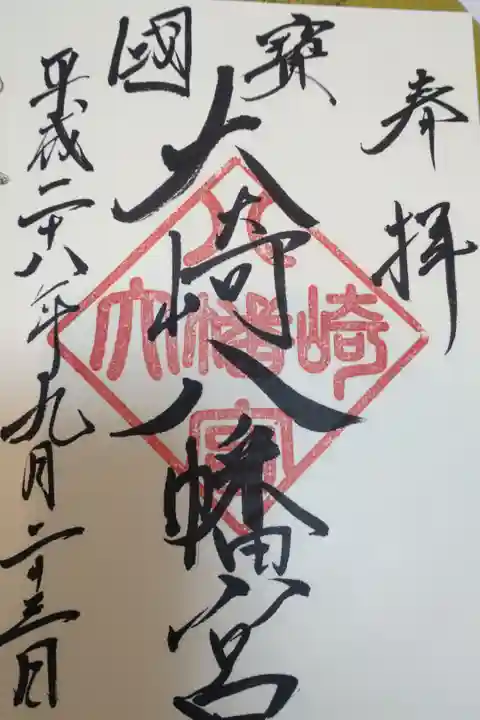 奉拝
國寳
大崎八幡宮
大崎八幡宮
平成二十八年九月二十三日